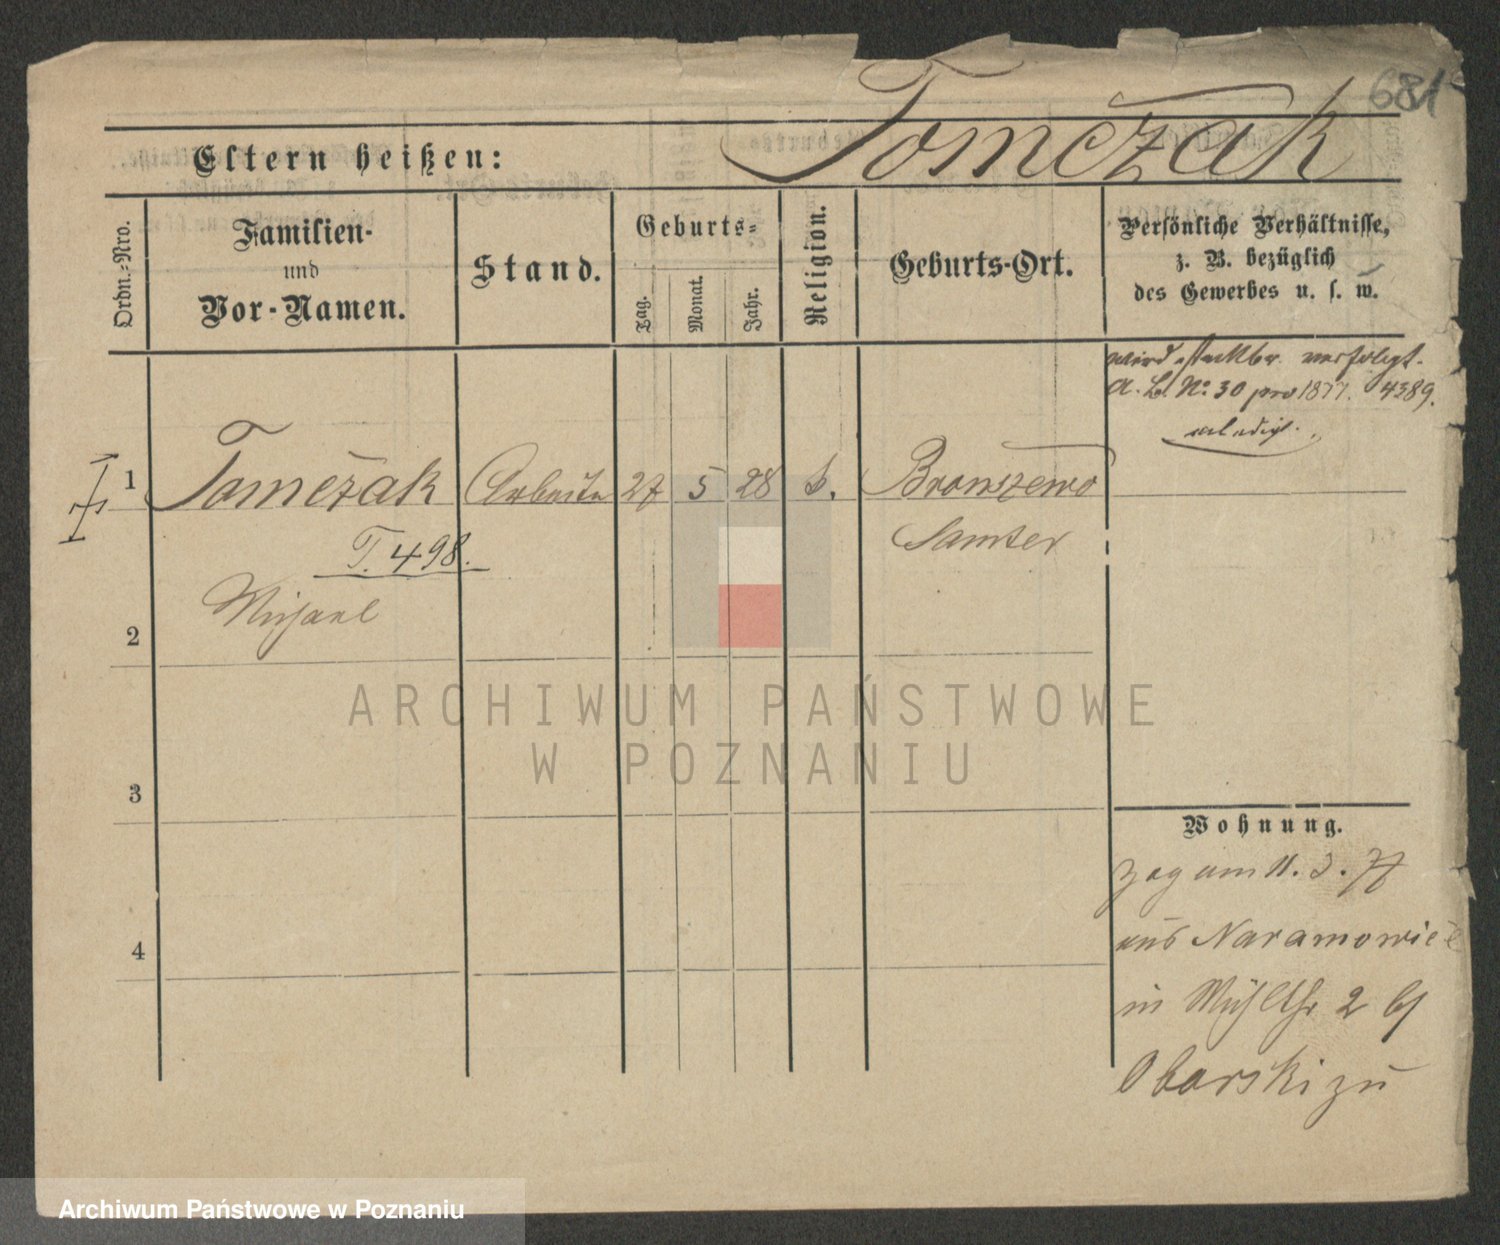 681
Tomczak
Eltern heißen:
Ordn.-Nro.
Familien-
und
Vor-Namen.
Stand.
Geburts-
Tag.
Monat.
Jahr.
Religion.
Geburts-Ort.
Persönliche Verhältnisse,
z. B. bezüglich
des Gewerbes u. s. w.
wird steckbr. verfolgt.
A. Bl. No. 30 pro 1877. 4389.
erledigt.
1 Tomczak Arbeiter 27 5 28 k. Bronszewo
Samter
T. 498.
Michael
2
3
4
Wohnung.
zog am 11. 3. 77
aus Naramowice
in Mühlstr 2 bei
Obarski zu
ARCHIWUM PAŃSTWOWE
W POZNANIU
Archiwum Państwowe w Poznaniu